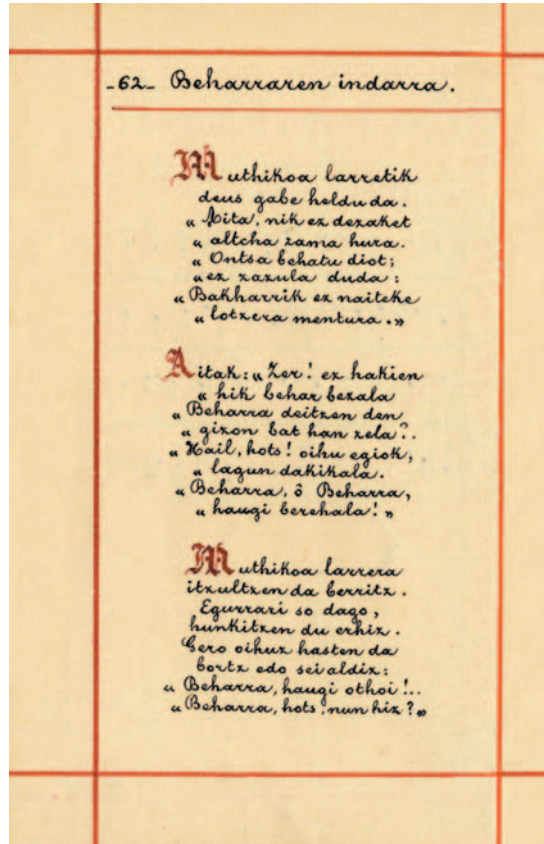 -62- Beharraren indarra.
Muthikoa larretik
deus gabe heldu da.
« Aita, nik ez dezaket
« altcha zama hura.
« Ontsa behatu diot;
« ez zazula duda :
« Bakharrik ez naiteke
« lotzera mentura. »
Aitak: « Zer! ez hakien
« hik behar bezala
« Beharra deitzen den
« gizon bat han zela?..
« Hail, hots! oihu egiok,
« lagun dakikala.
« Beharra, ô Beharra,
« haugi berehala! »
Muthikoa larrera
itzultzen da berritz.
Egurrari so dago,
hunkitzen du erhiz.
Gero oihuz hasten da
bortz edo sei aldiz:
« Beharra, haugi othoi!..
« Beharra, hots, nun hiz? »